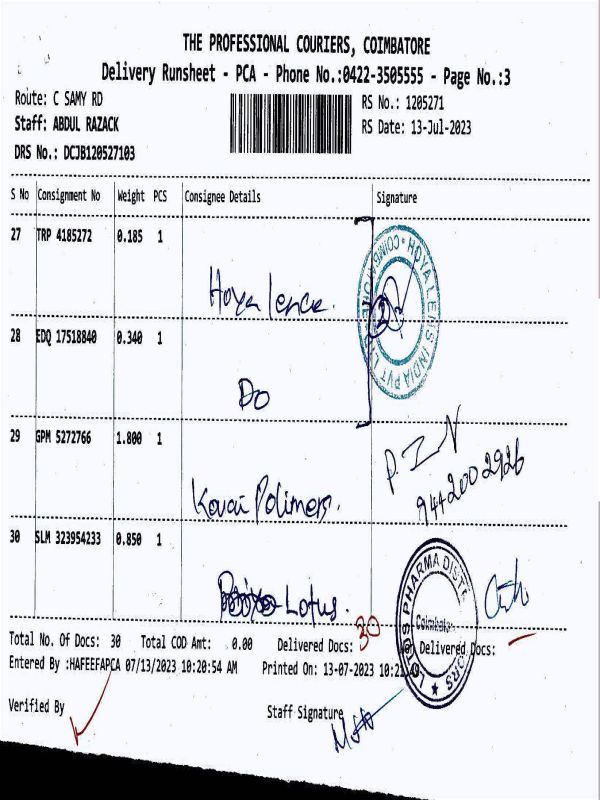 THE PROFESSIONAL COURIERS, COIMBATORE
Delivery Runsheet - PCA - Phone No.:0422-3505555 - Page No.:3
Route: C SAMY RD
RS No.: 1205271
Staff: ABDUL RAZACK
RS Date: 13-Jul-2023
DRS No.: DCJB120527103
S No Consignment No Weight PCS Consignee Details Signature
27 TRP 4185272 0.185 1
Hoya lence.
HOYA LENS INDIA PVT LTD COIMBATORE
28 EDQ 17518840 0.340 1
Do
29 GPM 5272766 1.800 1
P. I N
9442002926
Kovai Polimers.
30 SLM 323954233 0.850 1
Lotus.
LOTUS PHARMA DISTRIBUTORS
Coimbatore
Total No. Of Docs: 30 Total COD Amt: 0.00 Delivered Docs: 30 Delivered Docs:
Entered By :HAFEEFAPCA 07/13/2023 10:20:54 AM Printed On: 13-07-2023 10:21
Verified By
Staff Signature